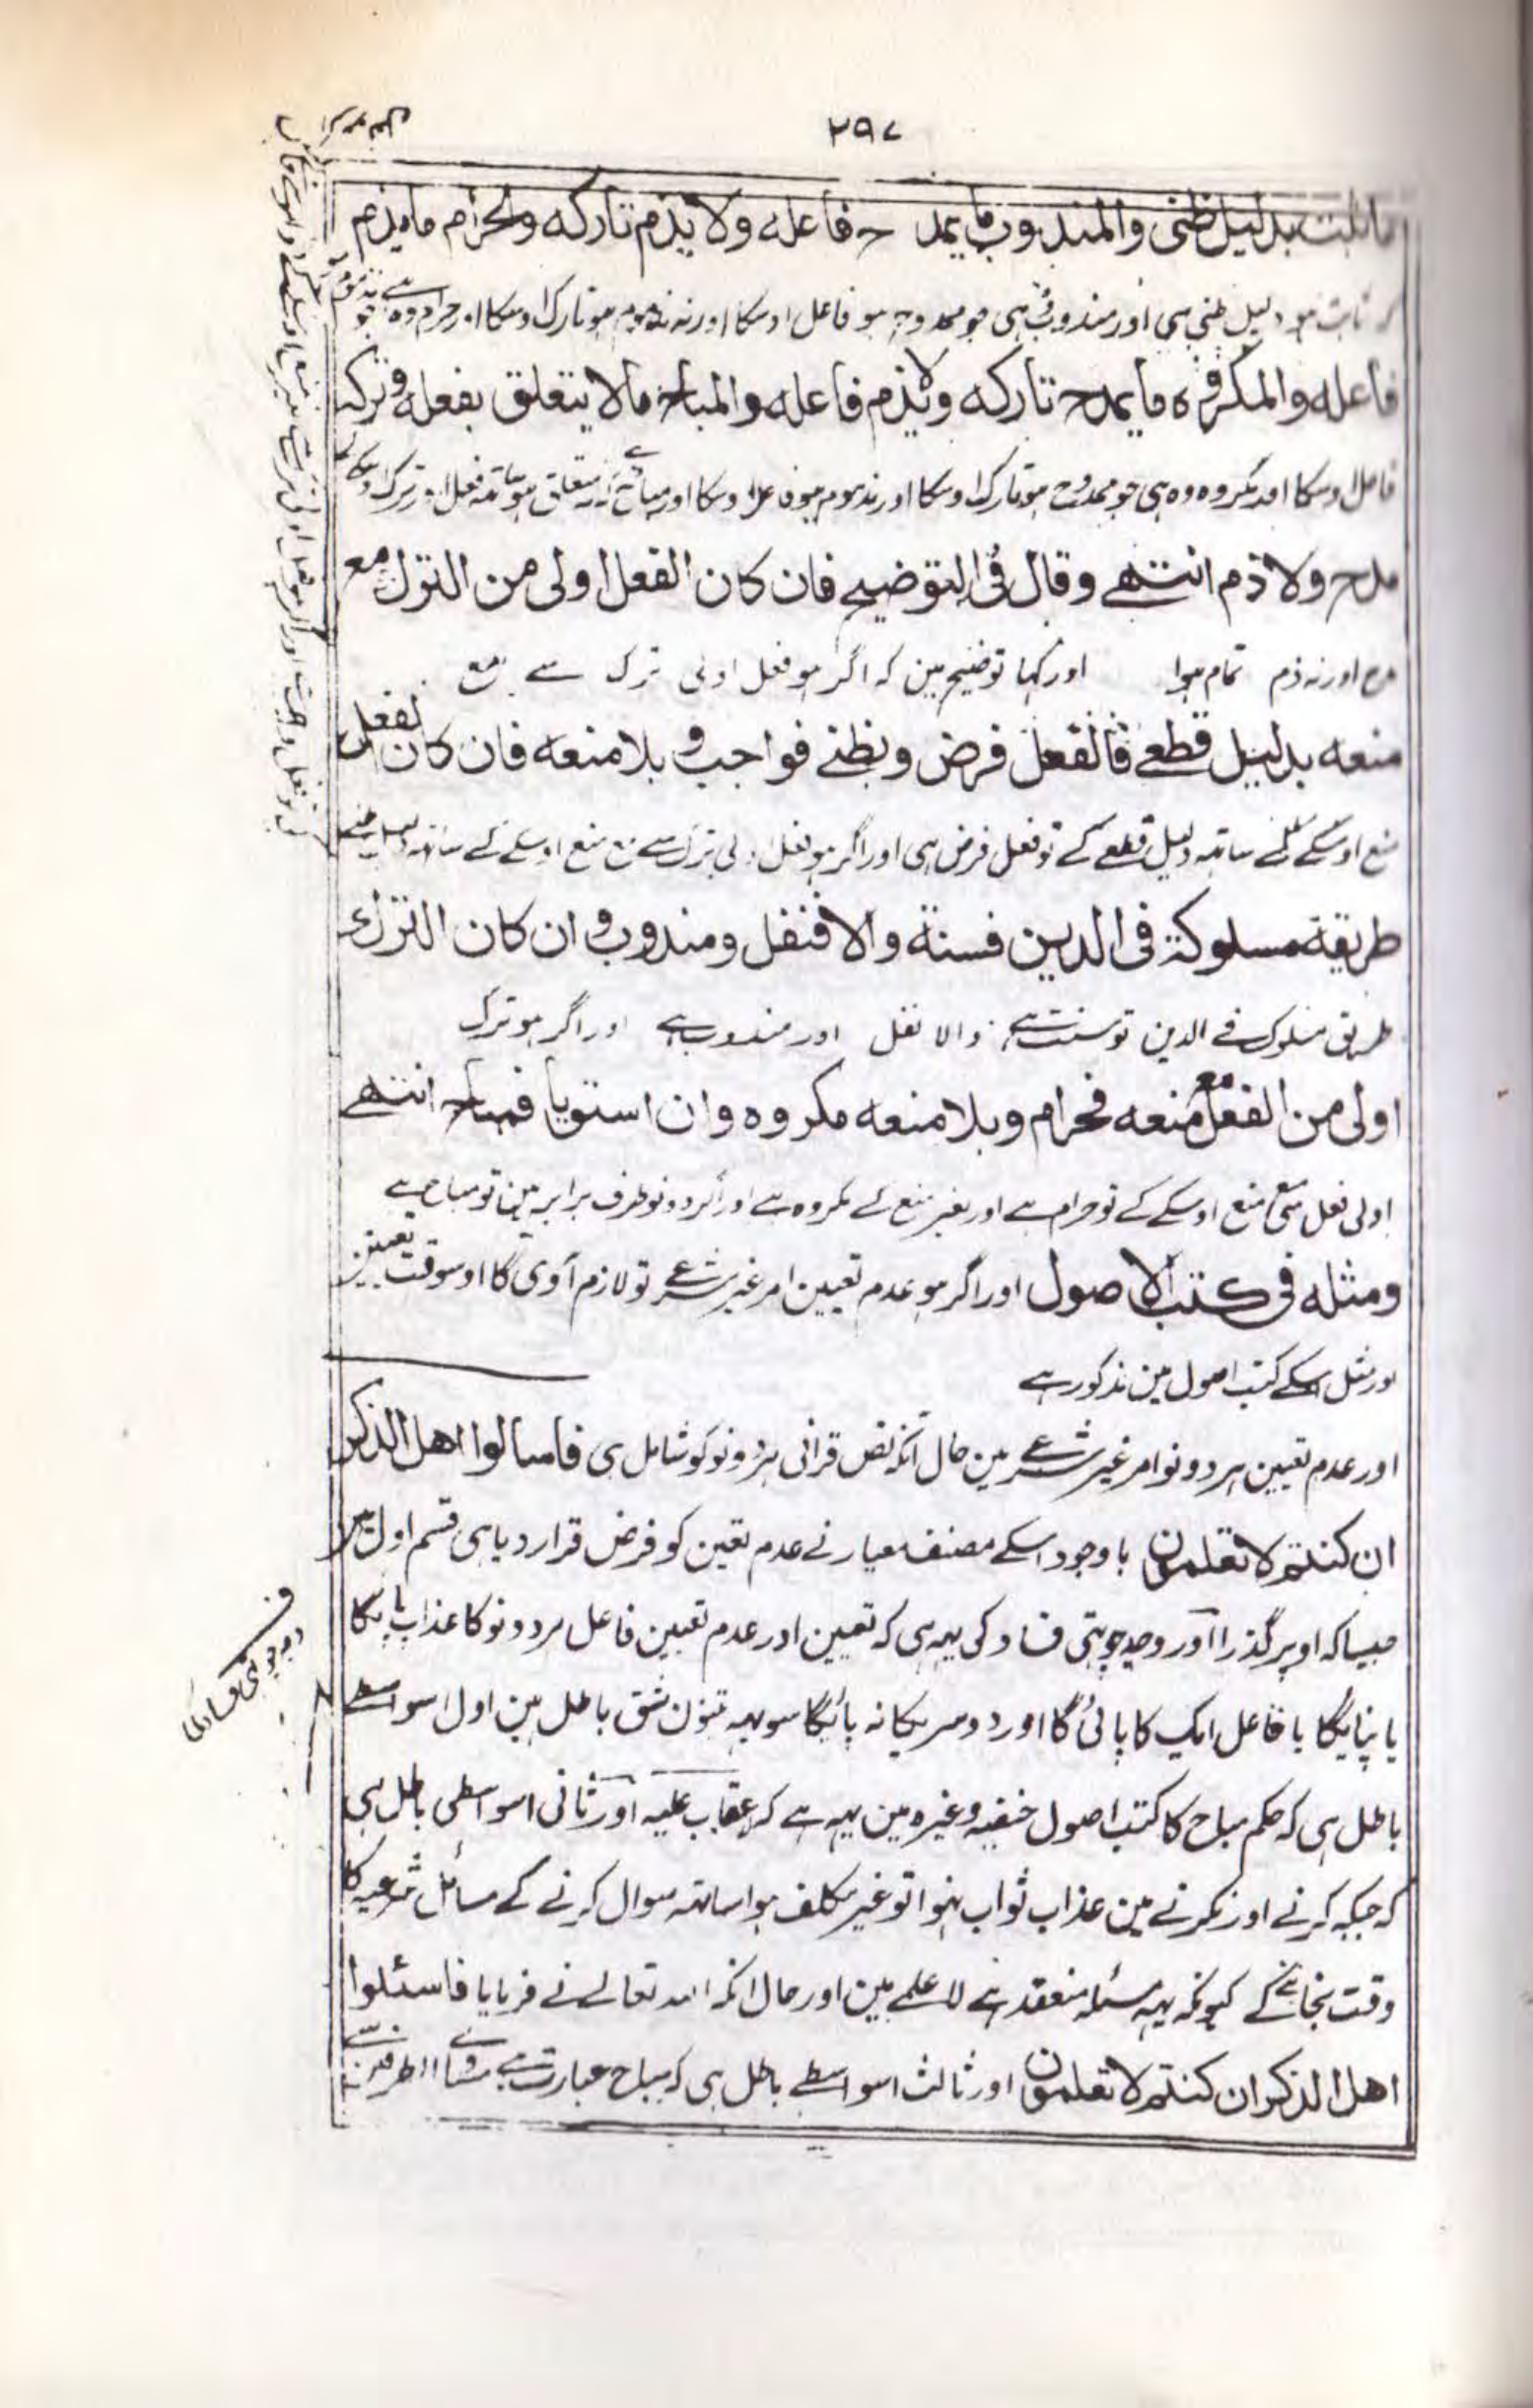 ۲۹۷
ما ثبت بدلیل ظنی والمندوب ما یمدح فاعله ولا یذم تارکه والحرام ما یذم
ثابت ہو دلیل ظنی سی اور مندوب وہ ہی جو ممدوح ہو فاعل اوسکا اور نہ مذموم ہو تارک اوسکا اور حرام وہ ہے جو
فاعله والمکروه ما یمدح تارکه ولا یذم فاعله والمباح ما لا یتعلق بفعله وترکه
فاعل اوسکا اور مکروہ وہ ہی جو ممدوح ہو تارک اوسکا اور نہ مذموم ہو فاعل اوسکا اور مباح نہ متعلق ہو ساتہ فعل اور ترک اوسکے
مدح ولا ذم انتهے وقال فی التوضیح فان کان الفعل اولی من الترک مع
مدح اور نہ ذم تمام ہوا اور کہا توضیح مین کہ اگر ہو فعل اولی ترک سے مع
منعه بدلیل قطعے فالفعل فرض وبظنے فواجب وبلا منعه فان کان الفعل
منع اوسکے کے ساتہ دلیل قطعے کے تو فعل فرض ہی اور اگر ہو فعل اولی ترک سے مع منع اوسکے کے ساتہ دلیل ظنے
طریقة مسلوکة فی الدین فسنة والا فنفل ومندوب وان کان الترک
طریق مسلوک فے الدین تو سنت ہے والا نفل اور مندوب ہے اور اگر ہو ترک
اولی من الفعل مع منعه فحرام وبلا منعه مکروه وان استویا فمباح انتهے
اولی فعل سی مع منع اوسکے کے تو حرام ہے اور بغیر منع کے مکروہ ہے اور اگر دونو طرف برابر ہین تو مباح ہے
ومثله فی کتب الاصول اور اگر ہو عدم تعیین امر غیر شرعے تو لازم آوی گا اوسوقت تعیین
اور مثل اسکے کتب اصول مین مذکور ہے
اور عدم تعیین ہر دو نو امر غیر شرعے مین حال آنکہ نص قرانی ہر دونو کو شامل ہی فاسألوا اهل الذکر
ان کنتم لا تعلمون باوجود اسکے مصنف معیار نے عدم تعین کو فرض قرار دیا ہی قسم اول مین
جیسا کہ اوپر گذرا اور وجہ چوتہی فساد کی یہہ ہی کہ تعیین اور عدم تعیین فاعل ہر دو نو کا عذاب پائیگا
یا نپائیگا یا فاعل ایک کا پائی گا اور دوسریکا نہ پائیگا سو یہہ تینون شق باطل ہین اول اسواسطے
باطل ہی کہ حکم مباح کا کتب اصول حنفیہ وغیرہ مین یہہ ہے کہ عقاب علیہ اور ثانی اسواسطی باطل ہی
کہ جبکہ کرنے اور نکرنے مین عذاب ثواب نہوا تو غیر مکلف ہوا ساتہ سوال کرنے کے مسائل شرعیہ کا
وقت نجاننے کے کیونکہ یہہ مسئلہ منعقد ہے لا علمے مین اور حال انکہ اللہ تعالے نے فرمایا فاسئلوا
اهل الذکر ان کنتم لا تعلمون اور ثالث اسواسطے باطل ہی کہ مباح عبارت ہے متساوے الطرفین سے
وجہ چوتہی فساد کی